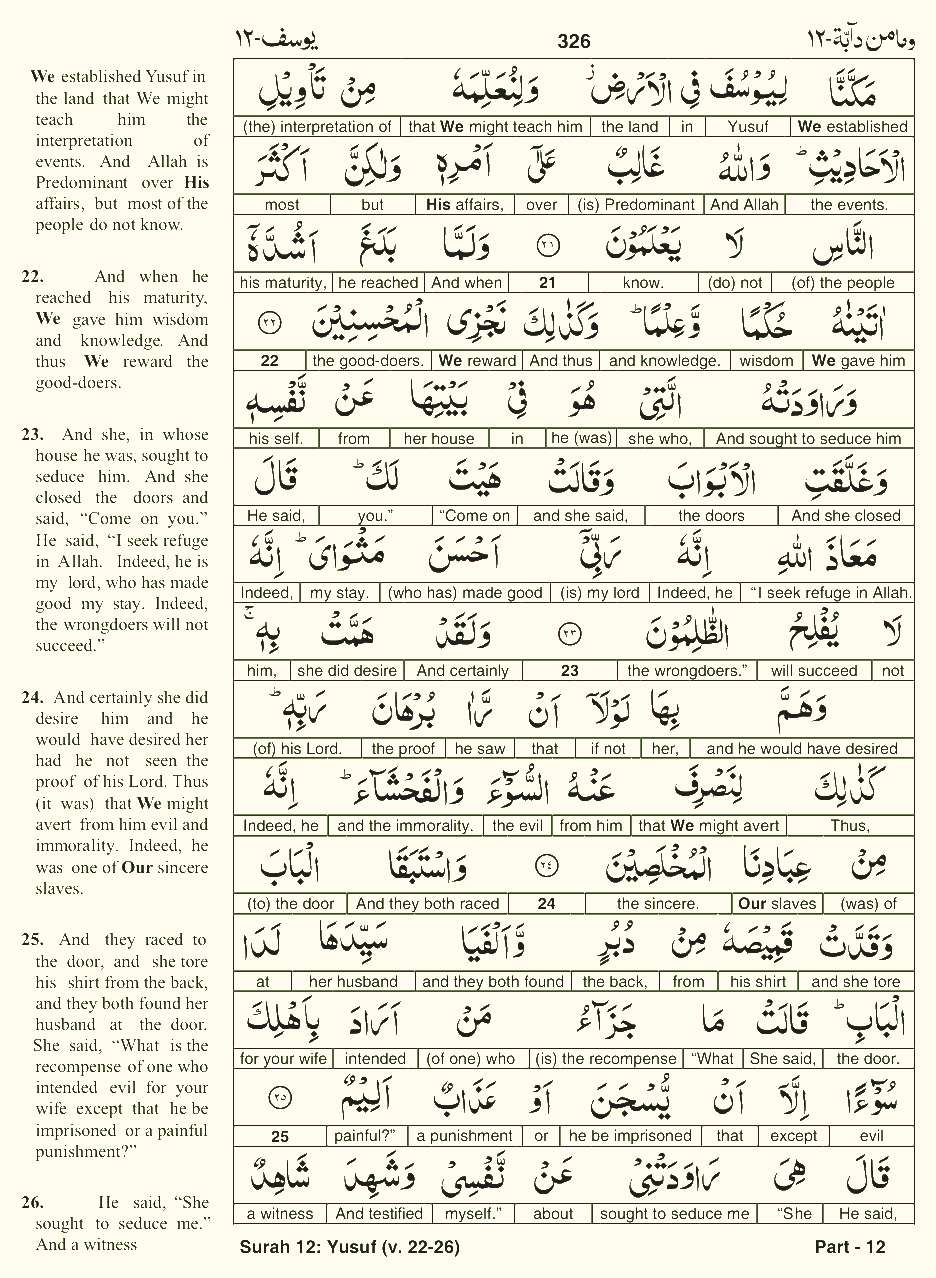 يوسف-١٢
326
وما من دآبة-١٢
We established Yusuf in
the land that We might
teach him the
interpretation of
events. And Allah is
Predominant over His
affairs, but most of the
people do not know.
22. And when he
reached his maturity,
We gave him wisdom
and knowledge. And
thus We reward the
good-doers.
23. And she, in whose
house he was, sought to
seduce him. And she
closed the doors and
said, “Come on you.”
He said, “I seek refuge
in Allah. Indeed, he is
my lord, who has made
good my stay. Indeed,
the wrongdoers will not
succeed.”
24. And certainly she did
desire him and he
would have desired her
had he not seen the
proof of his Lord. Thus
(it was) that We might
avert from him evil and
immorality. Indeed, he
was one of Our sincere
slaves.
25. And they raced to
the door, and she tore
his shirt from the back,
and they both found her
husband at the door.
She said, “What is the
recompense of one who
intended evil for your
wife except that he be
imprisoned or a painful
punishment?”
26. He said, “She
sought to seduce me.”
And a witness
مَكَّنَّا لِيُوْسُفَ فِي الْاَرْضِ ۫ وَلِنُعَلِّمَهٗ مِنْ تَاْوِيْلِ
(the) interpretation of that We might teach him the land in Yusuf We established
الْاَحَادِيْثِ ؕ وَاللّٰهُ غَالِبٌ عَلٰٓى اَمْرِهٖ وَلٰكِنَّ اَكْثَرَ
most but His affairs, over (is) Predominant And Allah the events.
النَّاسِ لَا يَعْلَمُوْنَ ٢١ وَلَمَّا بَلَغَ اَشُدَّهٗٓ
his maturity, he reached And when 21 know. (do) not (of) the people
اٰتَيْنٰهُ حُكْمًا وَّعِلْمًا ؕ وَكَذٰلِكَ نَجْزِى الْمُحْسِنِيْنَ ٢٢
22 the good-doers. We reward And thus and knowledge. wisdom We gave him
وَرَاوَدَتْهُ الَّتِيْ هُوَ فِيْ بَيْتِهَا عَنْ نَّفْسِهٖ
his self. from her house in he (was) she who, And sought to seduce him
وَغَلَّقَتِ الْاَبْوَابَ وَقَالَتْ هَيْتَ لَكَ ؕ قَالَ
He said, you.” “Come on and she said, the doors And she closed
مَعَاذَ اللّٰهِ اِنَّهٗ رَبِّيْٓ اَحْسَنَ مَثْوَاىَ ؕ اِنَّهٗ
Indeed, my stay. (who has) made good (is) my lord Indeed, he “I seek refuge in Allah.
لَا يُفْلِحُ الظّٰلِمُوْنَ ٢٣ وَلَقَدْ هَمَّتْ بِهٖ ۚ
him, she did desire And certainly 23 the wrongdoers.” will succeed not
وَهَمَّ بِهَا لَوْلَآ اَنْ رَّاٰ بُرْهَانَ رَبِّهٖ ؕ
(of) his Lord. the proof he saw that if not her, and he would have desired
كَذٰلِكَ لِنَصْرِفَ عَنْهُ السُّوْٓءَ وَالْفَحْشَآءَ ؕ اِنَّهٗ
Indeed, he and the immorality. the evil from him that We might avert Thus,
مِنْ عِبَادِنَا الْمُخْلَصِيْنَ ٢٤ وَاسْتَبَقَا الْبَابَ
(to) the door And they both raced 24 the sincere. Our slaves (was) of
وَقَدَّتْ قَمِيْصَهٗ مِنْ دُبُرٍ وَّاَلْفَيَا سَيِّدَهَا لَدَا
at her husband and they both found the back, from his shirt and she tore
الْبَابِ ؕ قَالَتْ مَا جَزَآءُ مَنْ اَرَادَ بِاَهْلِكَ
for your wife intended (of one) who (is) the recompense “What She said, the door.
سُوْٓءًا اِلَّآ اَنْ يُّسْجَنَ اَوْ عَذَابٌ اَلِيْمٌ ٢٥
25 painful?” a punishment or he be imprisoned that except evil
قَالَ هِىَ رَاوَدَتْنِيْ عَنْ نَّفْسِيْ وَشَهِدَ شَاهِدٌ
a witness And testified myself.” about sought to seduce me “She He said,
Surah 12: Yusuf (v. 22-26)
Part - 12